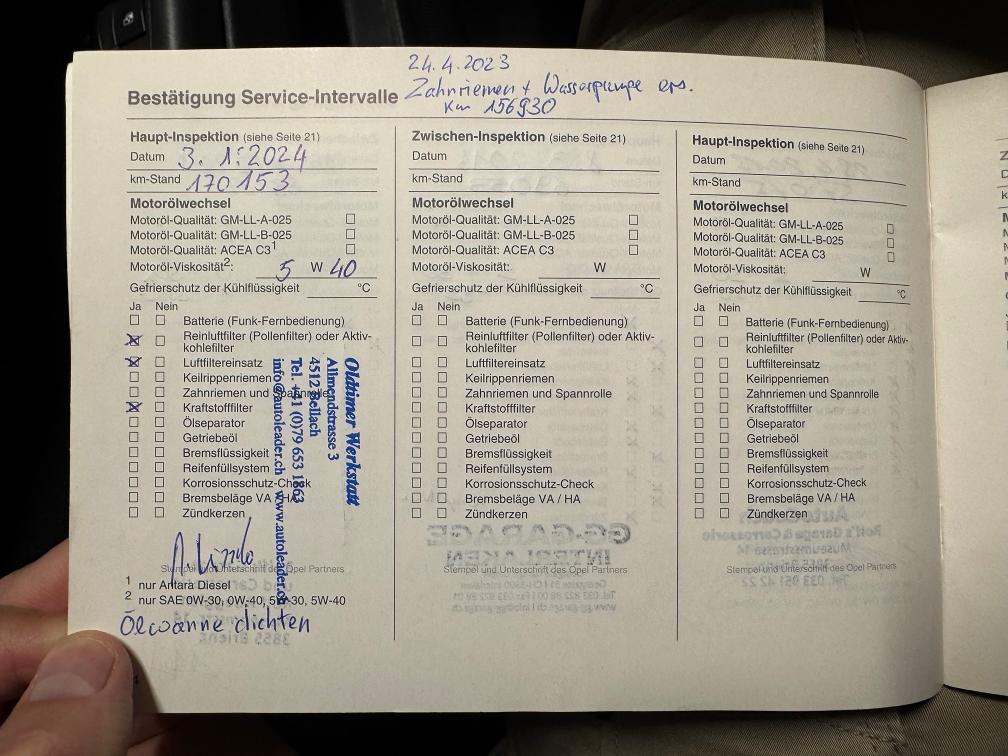 24.4.2023
Zahnriemen + Wasserpumpe ers.
Km 156930
Bestätigung Service-Intervalle
Haupt-Inspektion (siehe Seite 21)
Datum 3. 1. 2024
km-Stand 170 153
Motorölwechsel
Motoröl-Qualität: GM-LL-A-025
Motoröl-Qualität: GM-LL-B-025
Motoröl-Qualität: ACEA C3¹
Motoröl-Viskosität²: 5 W 40
Gefrierschutz der Kühlflüssigkeit °C
Ja Nein
Batterie (Funk-Fernbedienung)
Reinluftfilter (Pollenfilter) oder Aktiv-
kohlefilter
Luftfiltereinsatz
Keilrippenriemen
Zahnriemen und Spannrolle
Kraftstofffilter
Ölseparator
Getriebeöl
Bremsflüssigkeit
Reifenfüllsystem
Korrosionsschutz-Check
Bremsbeläge VA / HA
Zündkerzen
Oldtimer Werkstatt
Allmendstrasse 3
4512 Bellach
Tel. +41 (0)79 653 1863
info@autoleader.ch www.autoleader.ch
Stempel und Unterschrift des Opel Partners
¹ nur Antara Diesel
² nur SAE 0W-30, 0W-40, 5W-30, 5W-40
Ölwanne dichten
Zwischen-Inspektion (siehe Seite 21)
Datum
km-Stand
Motorölwechsel
Motoröl-Qualität: GM-LL-A-025
Motoröl-Qualität: GM-LL-B-025
Motoröl-Qualität: ACEA C3
Motoröl-Viskosität: W
Gefrierschutz der Kühlflüssigkeit °C
Ja Nein
Batterie (Funk-Fernbedienung)
Reinluftfilter (Pollenfilter) oder Aktiv-
kohlefilter
Luftfiltereinsatz
Keilrippenriemen
Zahnriemen und Spannrolle
Kraftstofffilter
Ölseparator
Getriebeöl
Bremsflüssigkeit
Reifenfüllsystem
Korrosionsschutz-Check
Bremsbeläge VA / HA
Zündkerzen
Stempel und Unterschrift des Opel Partners
Haupt-Inspektion (siehe Seite 21)
Datum
km-Stand
Motorölwechsel
Motoröl-Qualität: GM-LL-A-025
Motoröl-Qualität: GM-LL-B-025
Motoröl-Qualität: ACEA C3
Motoröl-Viskosität: W
Gefrierschutz der Kühlflüssigkeit °C
Ja Nein
Batterie (Funk-Fernbedienung)
Reinluftfilter (Pollenfilter) oder Aktiv-
kohlefilter
Luftfiltereinsatz
Keilrippenriemen
Zahnriemen und Spannrolle
Kraftstofffilter
Ölseparator
Getriebeöl
Bremsflüssigkeit
Reifenfüllsystem
Korrosionsschutz-Check
Bremsbeläge VA / HA
Zündkerzen
Stempel und Unterschrift des Opel Partners